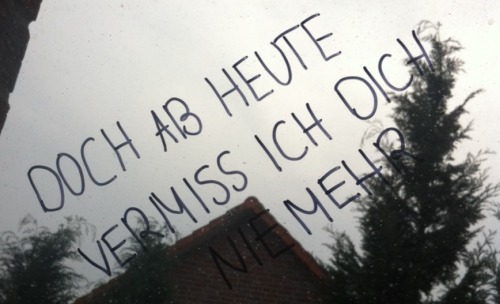 DOCH AB HEUTE
VERMISS ICH DICH
NIE MEHR